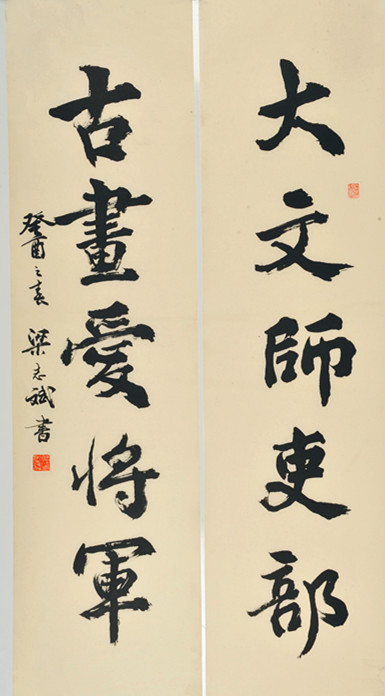 大文師吏部
古畫愛將軍
癸酉之春 梁志斌書